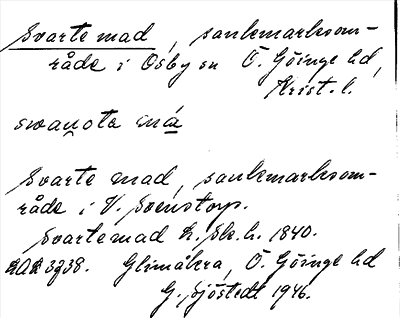 Svarte mad, sankmarksom-
råde i Osby sn Ö. Göinge hd,
Krist. l.
svaṇota má
Svarte mad, sankmarksom-
råde i V. Svenstorp.
Svartemad h. sk. h. 1840.
RAÄ 3738. Glimåkra, Ö. Göinge hd
G. Sjöstedt 1946.